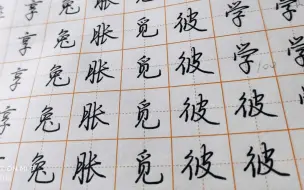 享 兔 胀 觅 彼 学 学
享 兔 胀 觅 彼 学 学
享 兔 胀 觅 彼 彼
享 兔 胀 觅 彼 彼